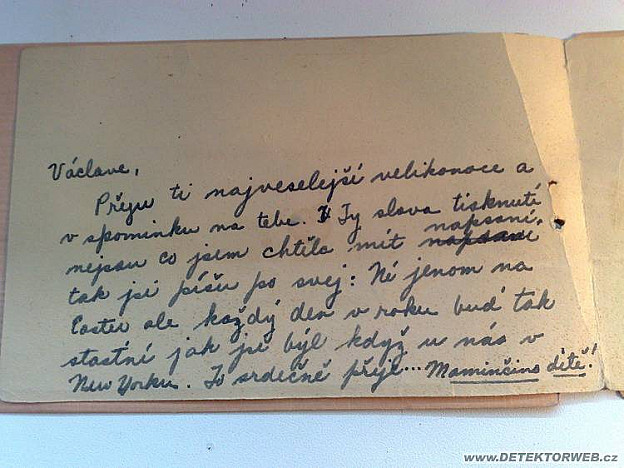 Václave,
Přeju ti najveselejší velikonoce a
v spominku na tebe. Ty slova tisknuté
nejsou co jsem chtěla mít napsaní
napsaní.
tak jsi píšu po svej: Né jenom na
Easter ale každý den v roku buď tak
stastní jak jsi býl když u nás v
New Yorku. To srdečně přeje... Maminčino dítě!
www.DETEKTORWEB.cz